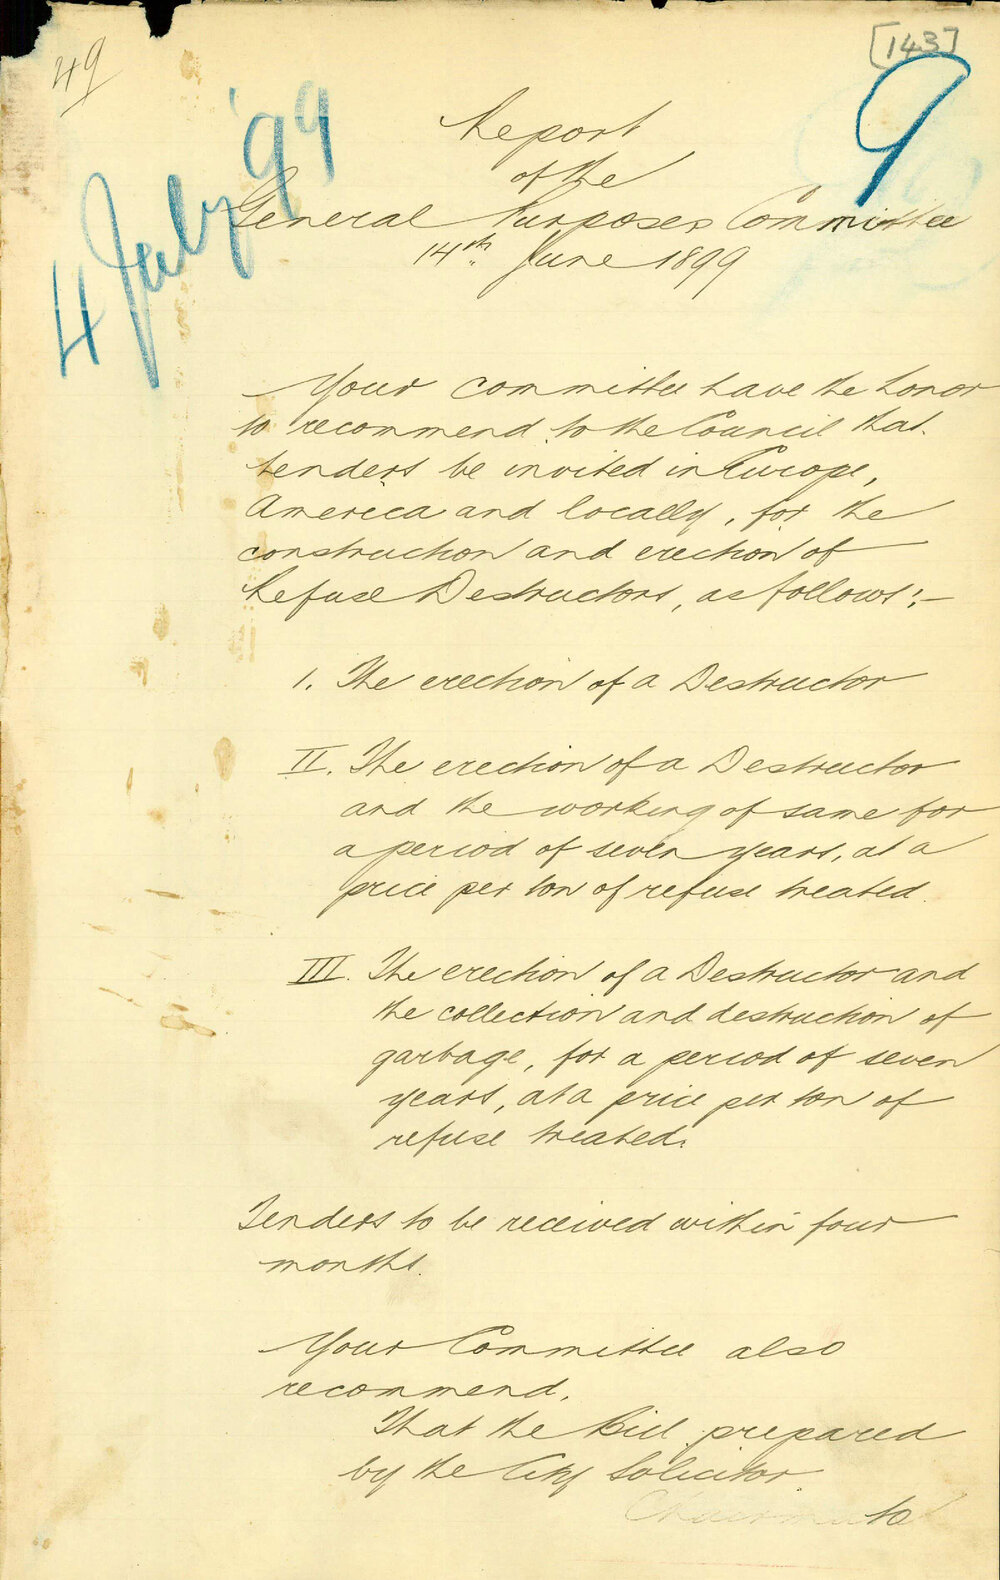 49
[143]
9
4 July '99
Report
of the
General Purposes Committee
14th June 1899
Your committee have the honor
to recommend to the Council that
tenders be invited in Europe,
America and locally, for the
construction and erection of
Refuse Destructors, as follows:-
1. The erection of a Destructor
II. The erection of a Destructor
and the working of same for
a period of seven years, at a
price per ton of refuse treated.
III. The erection of a Destructor and
the collection and destruction of
garbage, for a period of seven
years, at a price per ton of
refuse treated.
Tenders to be received within four
months.
Your Committee also
recommend,
That the Bill prepared
by the City Solicitor
Chairman to